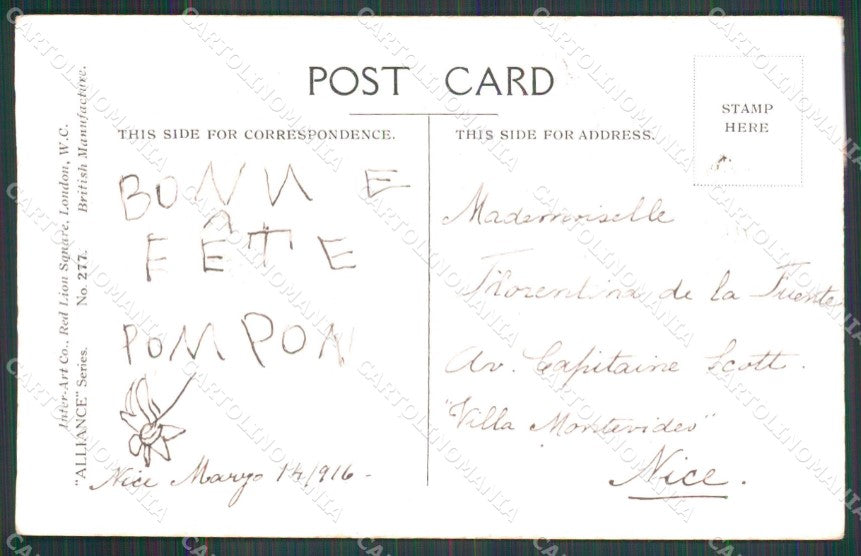 POST CARD
THIS SIDE FOR CORRESPONDENCE.
THIS SIDE FOR ADDRESS.
STAMP
HERE
BONNE
FÊTE
POMPON
Nice Marzo 14/916-
Mademoiselle
Florentina de la Fuente
Av. Capitaine Scott.
"Villa Montevideo"
Nice.
Inter-Art Co., Red Lion Square, London, W.C.
"ALLIANCE" Series. No. 277. British Manufacture.
CARTOLINOMANIA